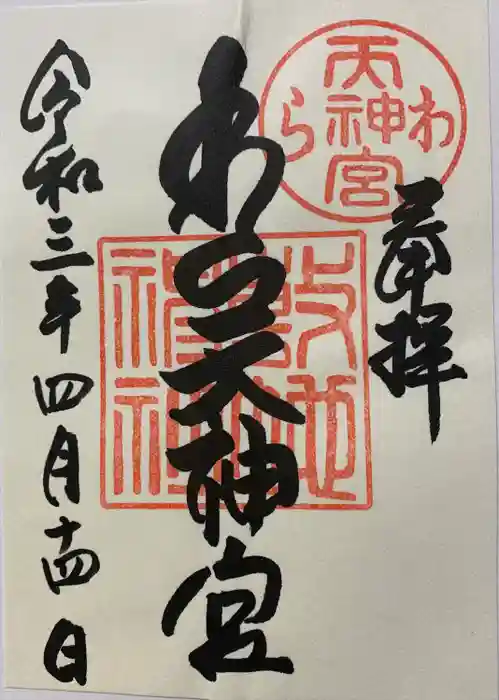 奉拝
わら天神宮
令和三年四月十四日
天神宮
わら
敷地神社